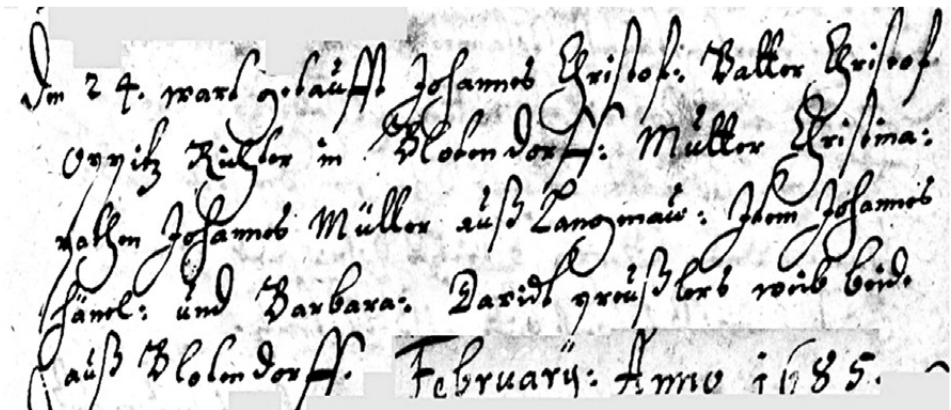 Den 24. ward getaufft Johannes Christof: Vatter Christof
Oppitz Richter in Blotendorff: Mutter Christina:
pathen Johannes Müller auß Langenaw: Item Johannes
Hänel: und Barbara: Davidt preußlers weib beide
auß Blotendorff. February: Anno 1685.